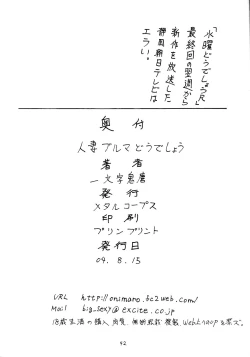 「水曜どうでしょうR」
最終回の翌週から
新作を放送した
静岡朝日テレビは
エラい。
奥付
人妻ブルマどうでしょう
著者
一文字鬼磨
発行
メタルコープス
印刷
プリンプリント
発行日
04.8.15
URL http://onimaro.bc2web.com/
Mail big_sexy@excite.co.jp
18歳未満の購入、
無断転載、複製、
62